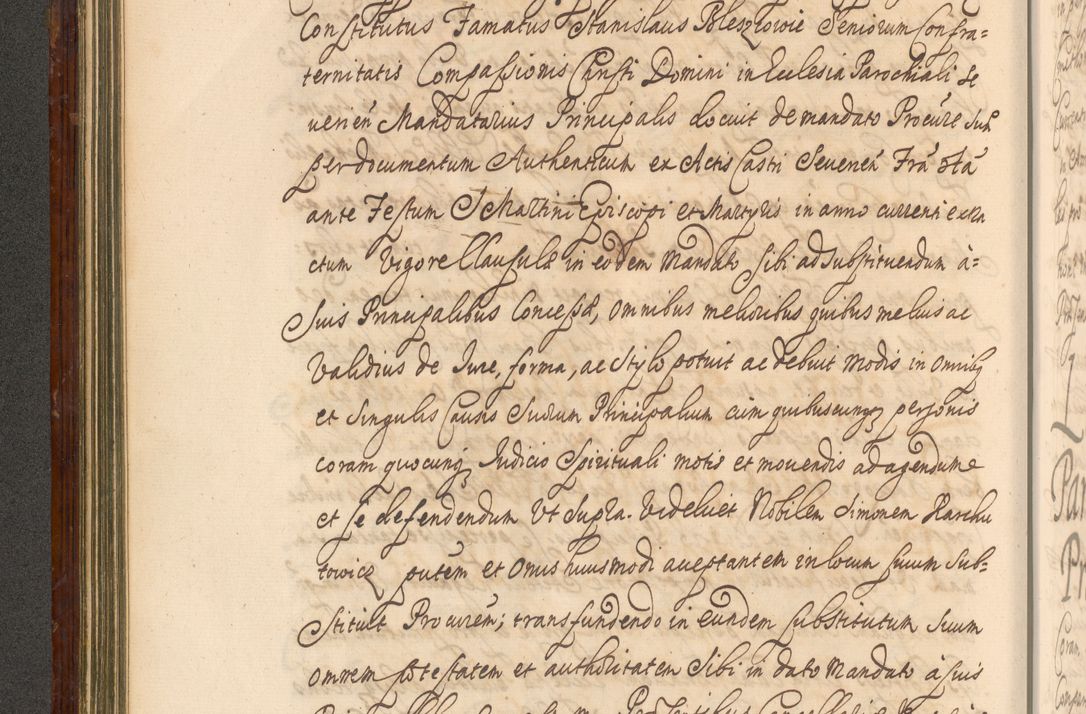 Constitutus Famatus Stanislaus Pleszowic Seniorum Confra=
ternitatis Compassionis Christi Domini in Ecclesia Parochiali Se
verien̄ Mandatarius Principalis docuit de mandato Procure sum̄
per documentum Authenticum ex Actis Castri Severien̄ Fr̄a 6ta
ante Festum S Martini Episcopi et Martyris in anno currenti extra
ctum Vigore Clausulæ in eodem Mandato sibi ad Substituendum à=
Suis Principalibus Concessæ, omnibus melioribus quibus melius ac
Validius de Jure, forma, ac Stylo potuit ac debuit modis in omnibq
et Singulis Causis Suorum Principalium cum quibuscunq personis
coram quocunq Judicio Spirituali motis et movendis ad agendum e
et se defendendum Ut Supra. Videlicet Nobilem Simonem Harchu
towicz put̄em et Onus huiusmodi acceptantem in locum suum Sub=
Stituit Procur̄em; transfundendo in eundem Substitutum Suum
omnem potestatem et authoritatem Sibi in dato Mandato à suis